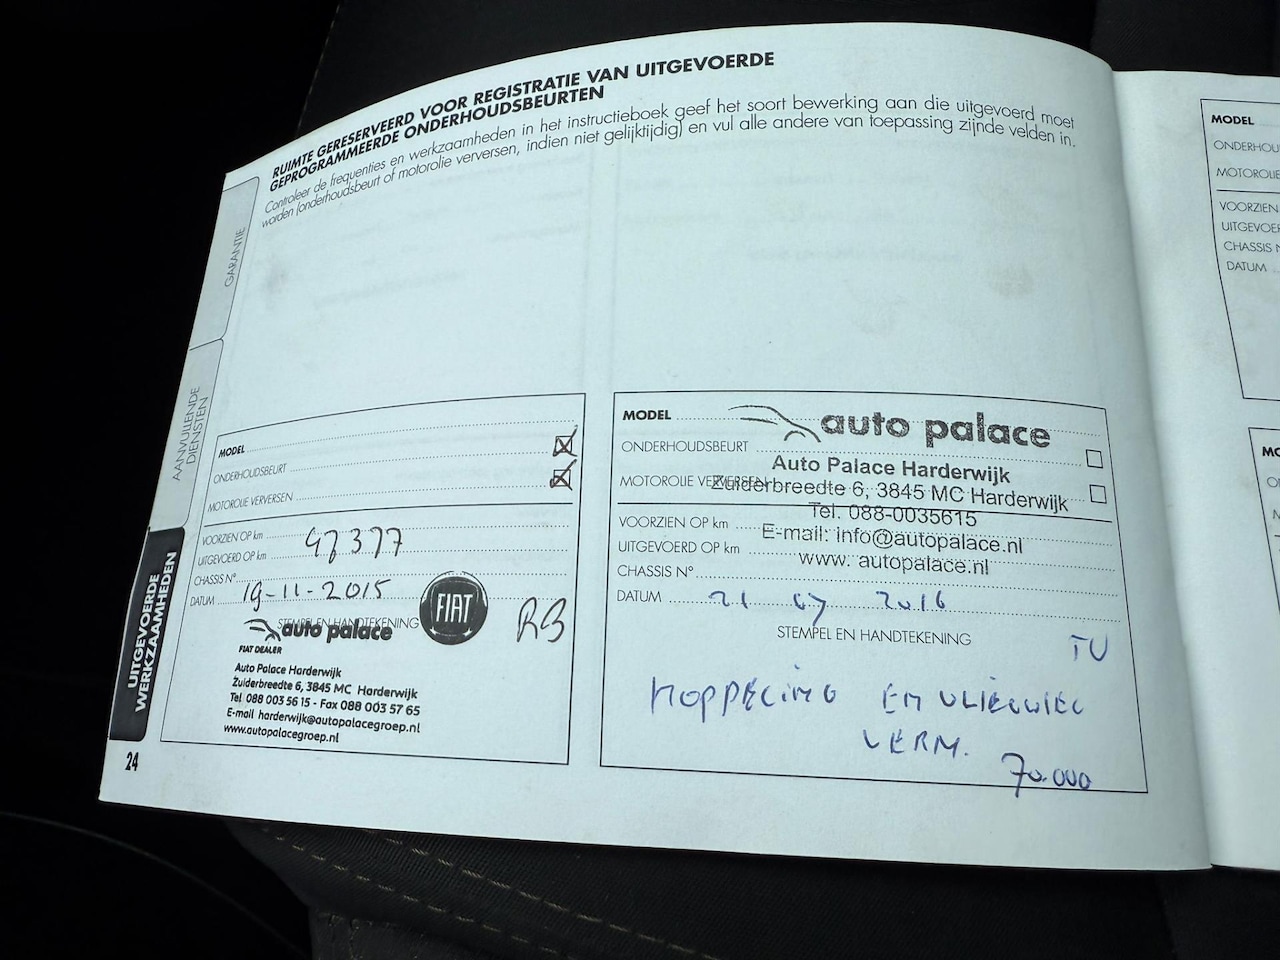 RUIMTE GERESERVEERD VOOR REGISTRATIE VAN UITGEVOERDE
GEPROGRAMMEERDE ONDERHOUDSBEURTEN
Controleer de frequenties en werkzaamheden in het instructieboek geef het soort bewerking aan die uitgevoerd moet
worden (onderhoudsbeurt of motorolie verversen, indien niet gelijktijdig) en vul alle andere van toepassing zijnde velden in.
GARANTIE
AANVULLENDE
DIENSTEN
UITGEVOERDE
WERKZAAMHEDEN
24
MODEL
ONDERHOUDSBEURT
MOTOROLIE VERVERSEN
VOORZIEN OP km
UITGEVOERD OP km 47377
CHASSIS N°
DATUM 19-11-2015
STEMPEL EN HANDTEKENING
FIAT
RB
auto palace
FIAT DEALER
Auto Palace Harderwijk
Zuiderbreedte 6, 3845 MC Harderwijk
Tel 088 003 56 15 - Fax 088 003 57 65
E-mail harderwijk@autopalacegroep.nl
www.autopalacegroep.nl
MODEL
auto palace
ONDERHOUDSBEURT
Auto Palace Harderwijk
MOTOROLIE VERVERSEN
Zuiderbreedte 6, 3845 MC Harderwijk
Tel. 088-0035615
VOORZIEN OP km
E-mail: info@autopalace.nl
UITGEVOERD OP km
www. autopalace.nl
CHASSIS N°
DATUM 21 07 2016
STEMPEL EN HANDTEKENING
TU
KOPPELING EN VLIEGWIEL
VERN.
70.000
MODEL
ONDERHOU
MOTOROLIE
VOORZIEN
UITGEVOER
CHASSIS N
DATUM